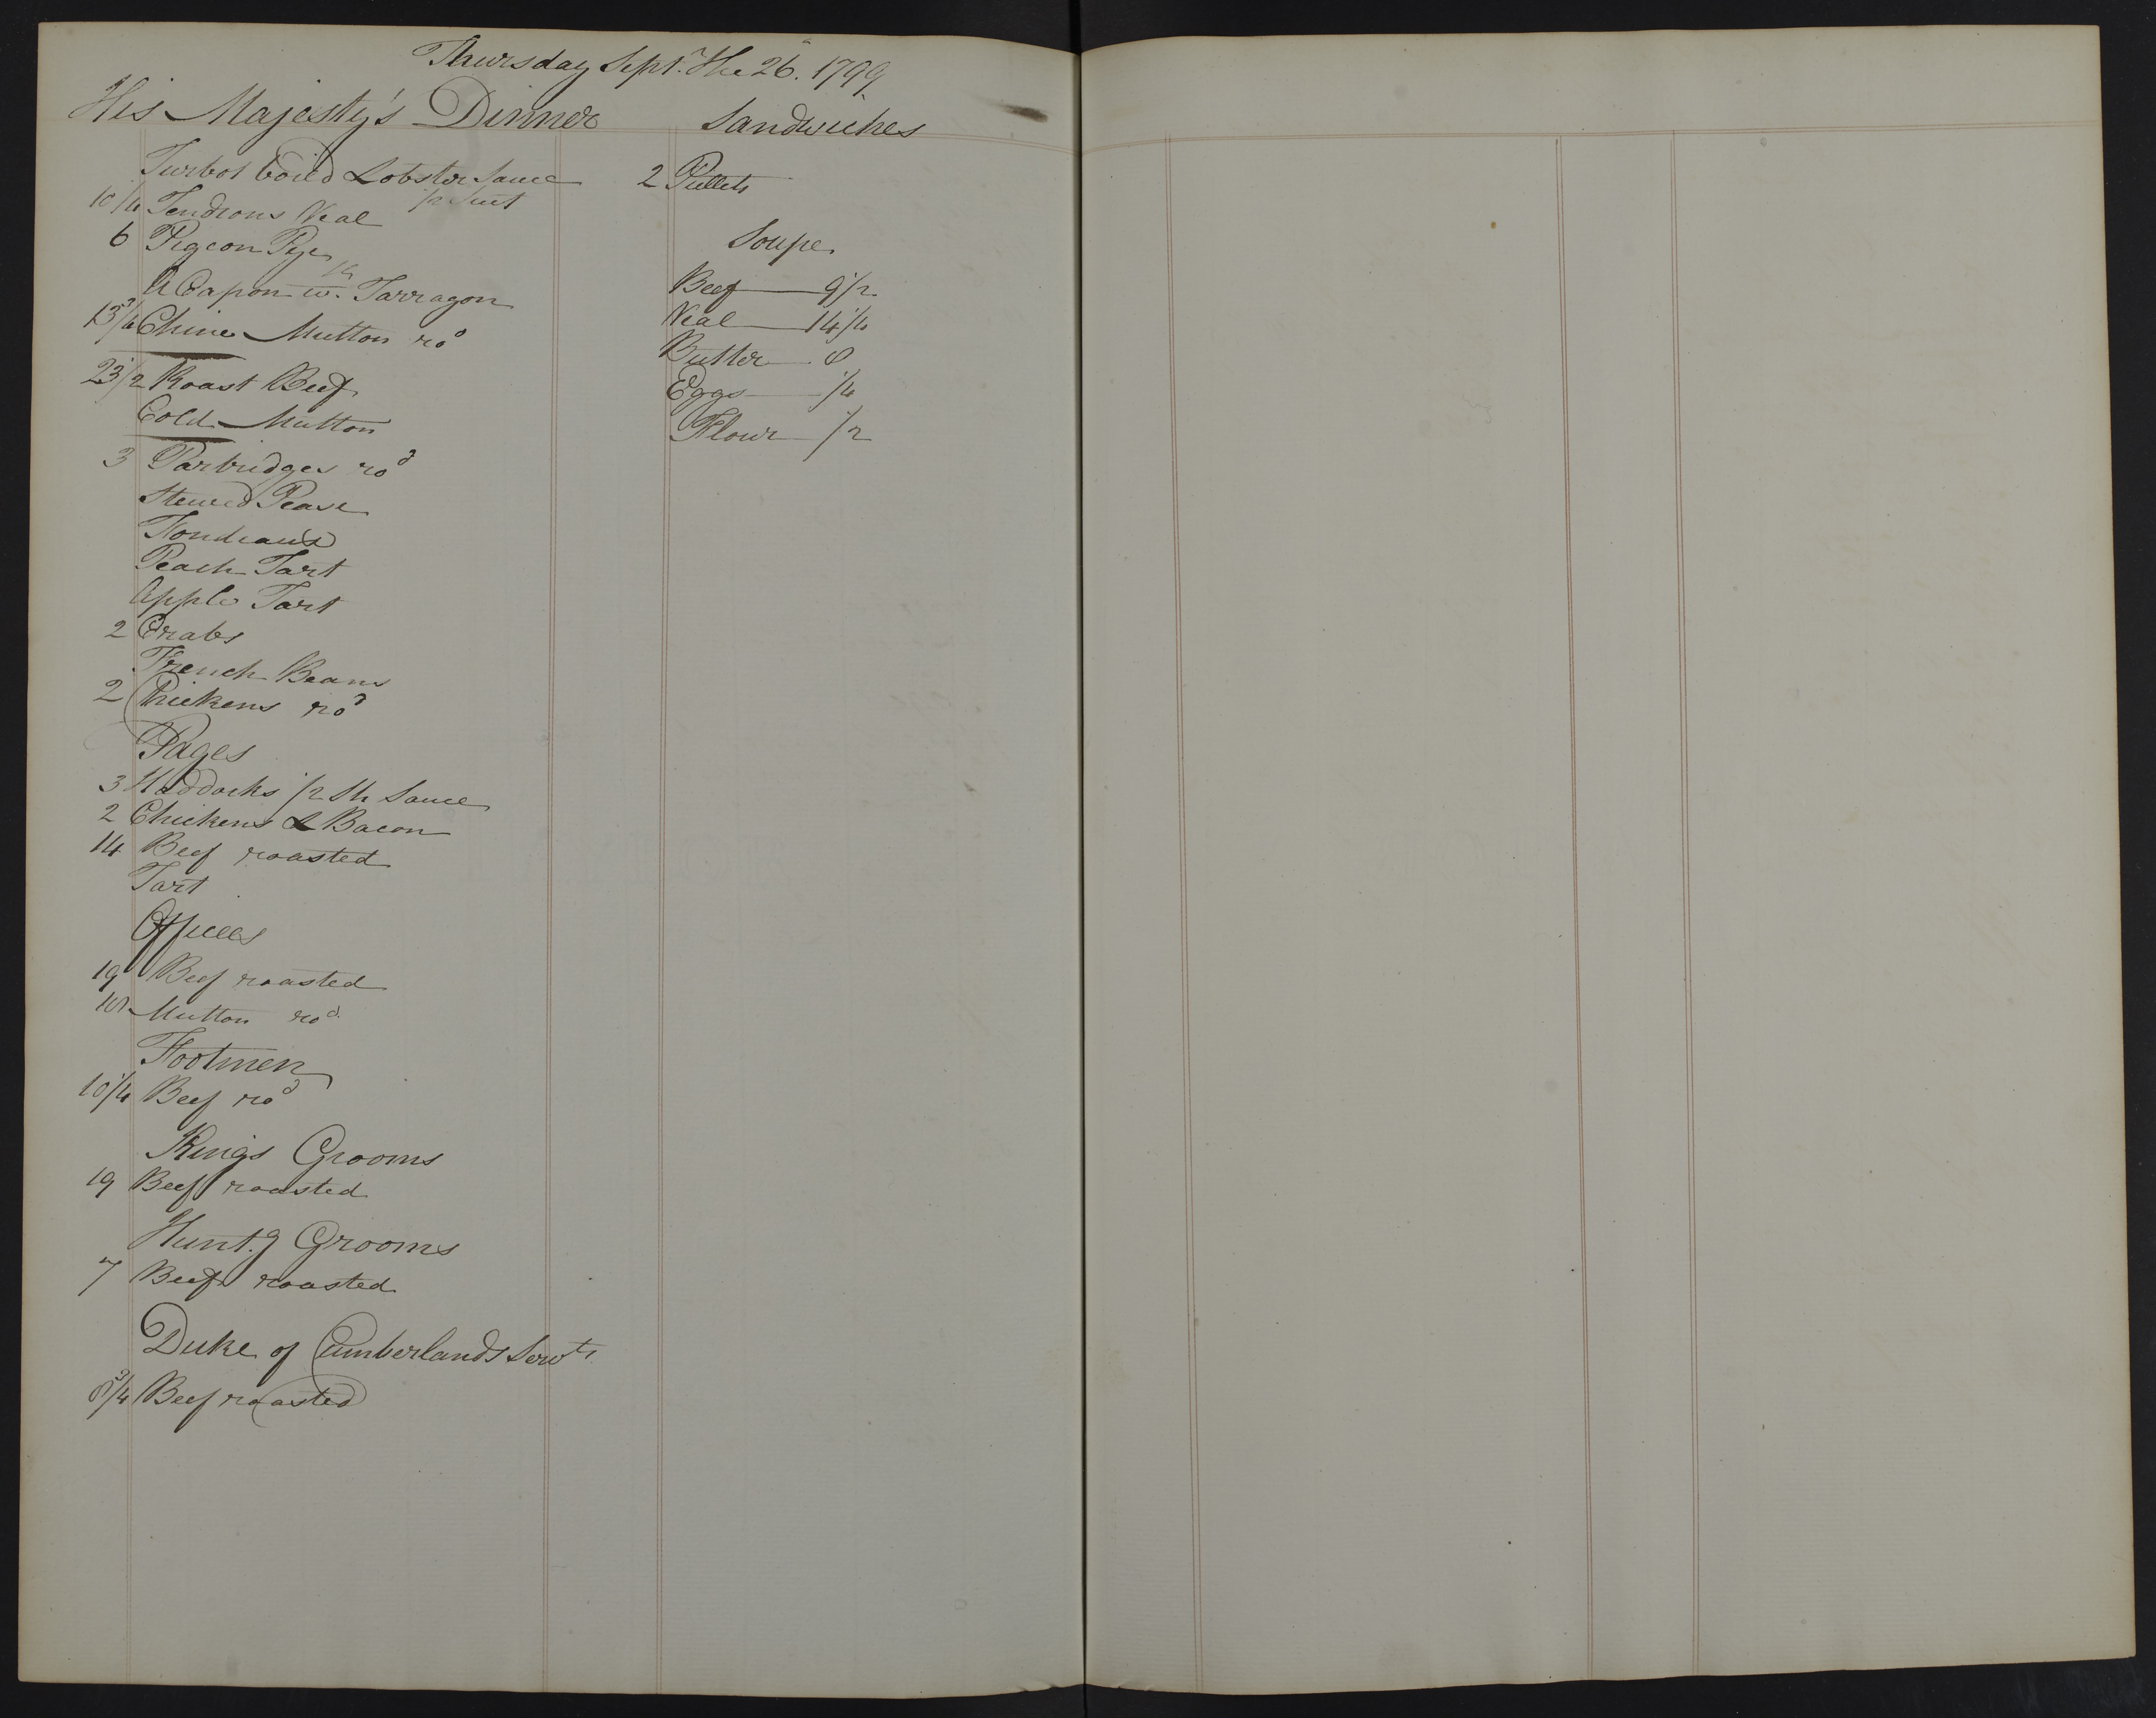 Thursday Sept.r the 26. 1799.
His Majesty's Dinner
Turbot boild Lobster Sauce
10 1/4 Tendrons Veal 1/2 Suet
6 Pigeon Pye
A Capon w.th Tarragon
13 3/4 Chine Mutton ro.d
23 1/2 Roast Beef
Cold Mutton
3 Partridges ro.d
Stewed Pease
Fondeaux
Peach Tart
Apple Tart
2 Crabs
French Beans
2 Chickens ro.d
Pages
3 Haddocks 1/2 Sh Sauce
2 Chickens & Bacon
14 Beef roasted
Tart
Offices
19 Beef roasted
18 Mutton ro.d
Footmen
10 1/4 Beef ro.d
Kings Grooms
19 Beef roasted
Hunt.g Grooms
7 Beef roasted
Duke of Cumberlands Serv.ts
8 3/4 Beef roasted
Sandwiches
2 Pullets
Soupe
Beef 9 1/2
Veal 14 1/4
Butter 8
Eggs 1/4
Flour 1/2